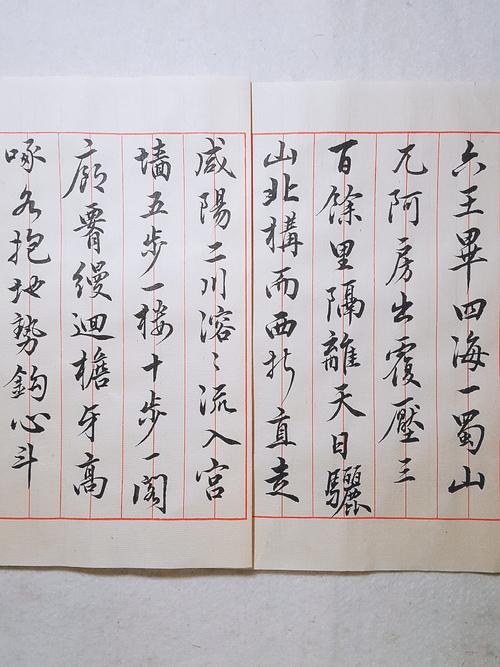 六王畢四海一蜀山
兀阿房出覆壓三
百餘里隔離天日驪
山北構而西折直走
咸陽二川溶〻流入宮
墻五步一樓十步一閣
廊腰縵迴檐牙高
啄各抱地勢鈎心斗